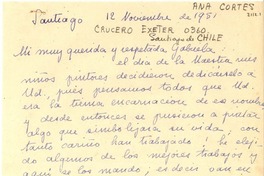 ANA CORTES
Santiago 12 Noviembre de 1951
CRUCERO EXETER 0360
Santiago de CHILE
Mi muy querida y respetada Gabriela:
el día de la Maestra mis
niños pintores decidieron dedicárselo a
Ud., pués pensamos todos que Ud.
era la tierna encarnacion de ese nombre
y desde entonces se pusieron a pintar
algo que simbolizara su vida, con
tanto cariño han trabajado! he elegi
do algunos de los mejores trabajos y
aqui se los mando; es decir van su